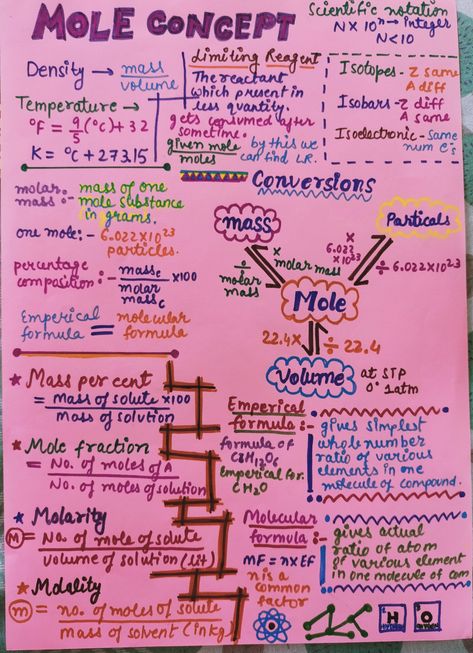 MOLE CONCEPT
Scientific notation
N X 10ⁿ → Integer
N<10
Density → mass
volume
Temperature →
°F = 9/5 (°C) + 32
K = °C + 273.15
Limiting Reagent
The reactant
which present in
less quantity.
gets consumed after
sometime.
given mole
moles
by this we
can find LR.
Isotopes - Z same
A diff
Isobars - Z diff
A same
Isoelectronic - same
num e⁻s
molar mass :- mass of one
mole substance
in grams.
one mole :- 6.022x10²³
particles.
percentage
compastion :- massc
molar
massc
x100
Emperical
formula = molecular
formula
Conversions
mass
Particals
x
molar mass
÷
molar
mass
x
6.022
x10²³
÷ 6.022x10²³
Mole
22.4x
÷ 22.4
Volume
at STP
0° 1atm
★ Mass per cent
= Mass of solute x100
Mass of solution
★ Mole fraction
= No. of moles of A
No. of moles of solution
★ Molarity
M = No. of mole of solute
volume of solution (lit)
★ Molality
m = no. of moles of solute
mass of solvent (in kg)
Emperical
formula :- gives simplest
whole number
ratio of various
elements in one
molecule of compound.
formula of
emperical for.
CH₂O
Molecular
formula :- gives actual
ratio of atom
of various element
in one molecule of com
MF = n x EF
n is a
common
factor
H
O